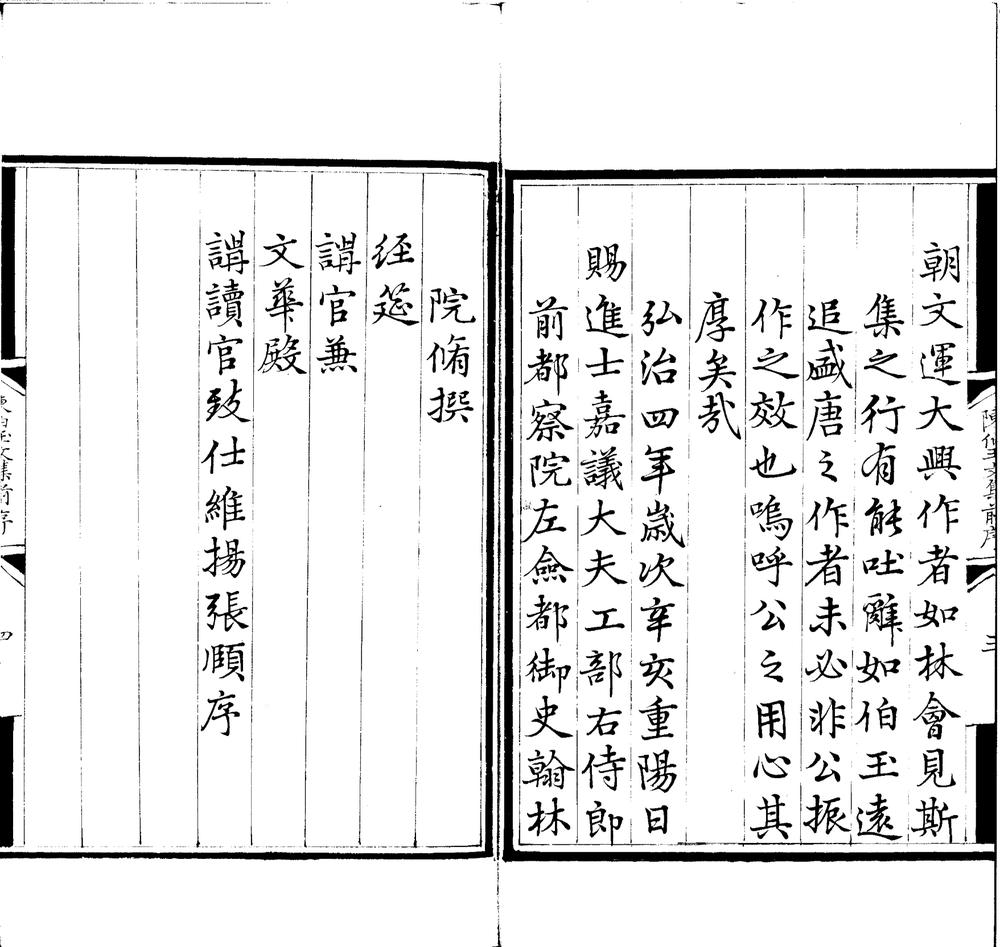 朝文運大興作者如林會見斯
集之行有能吐辭如伯玉遠
追盛唐之作者未必非公振
作之效也嗚呼公之用心其
厚矣哉
弘治四年歲次辛亥重陽日
賜進士嘉議大夫工部右侍郎
前都察院左僉都御史翰林
院脩撰
經筵
講官兼
文華殿
講讀官致仕維揚張頤序
陳伯玉文集前序
三
陳伯玉文集前序
四